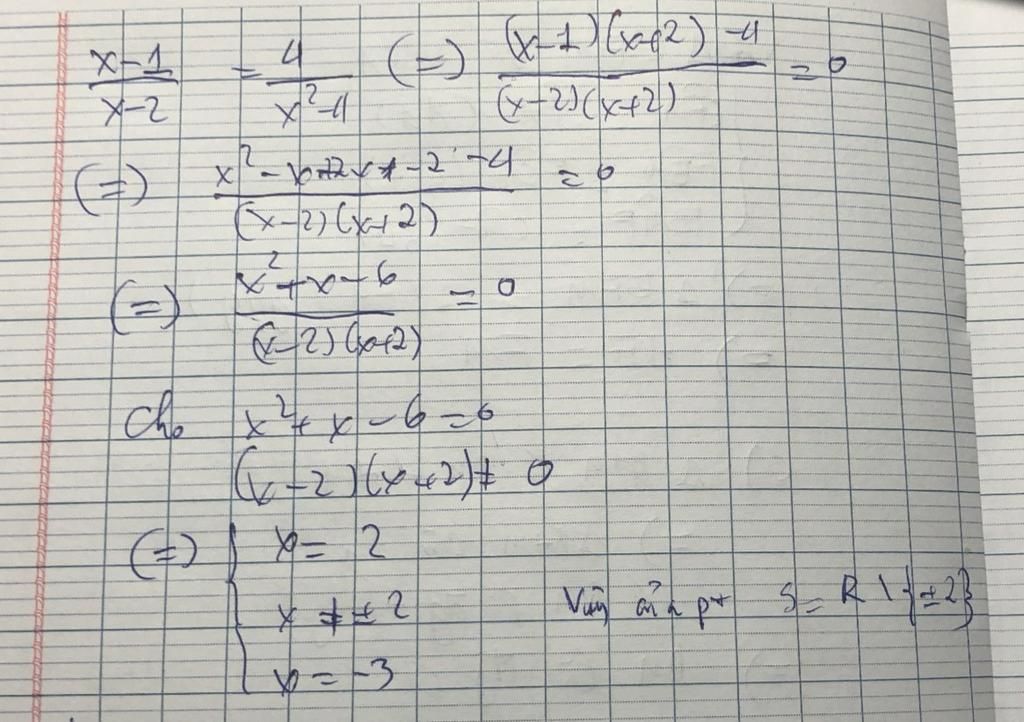 x-1/x-2 = 4/x²-4 (=) (x-1)(x+2)-4/(x-2)(x+2) = 0
(=) x²-x+2x-2-4/(x-2)(x+2) = 0
(=) x²+x-6/(x-2)(x+2) = 0
Cho x²+x-6=0
(x-2)(x+2)≠0
(=) { x = 2
x ≠ ±2
x = -3
Vậy pt S = R \ {±2}